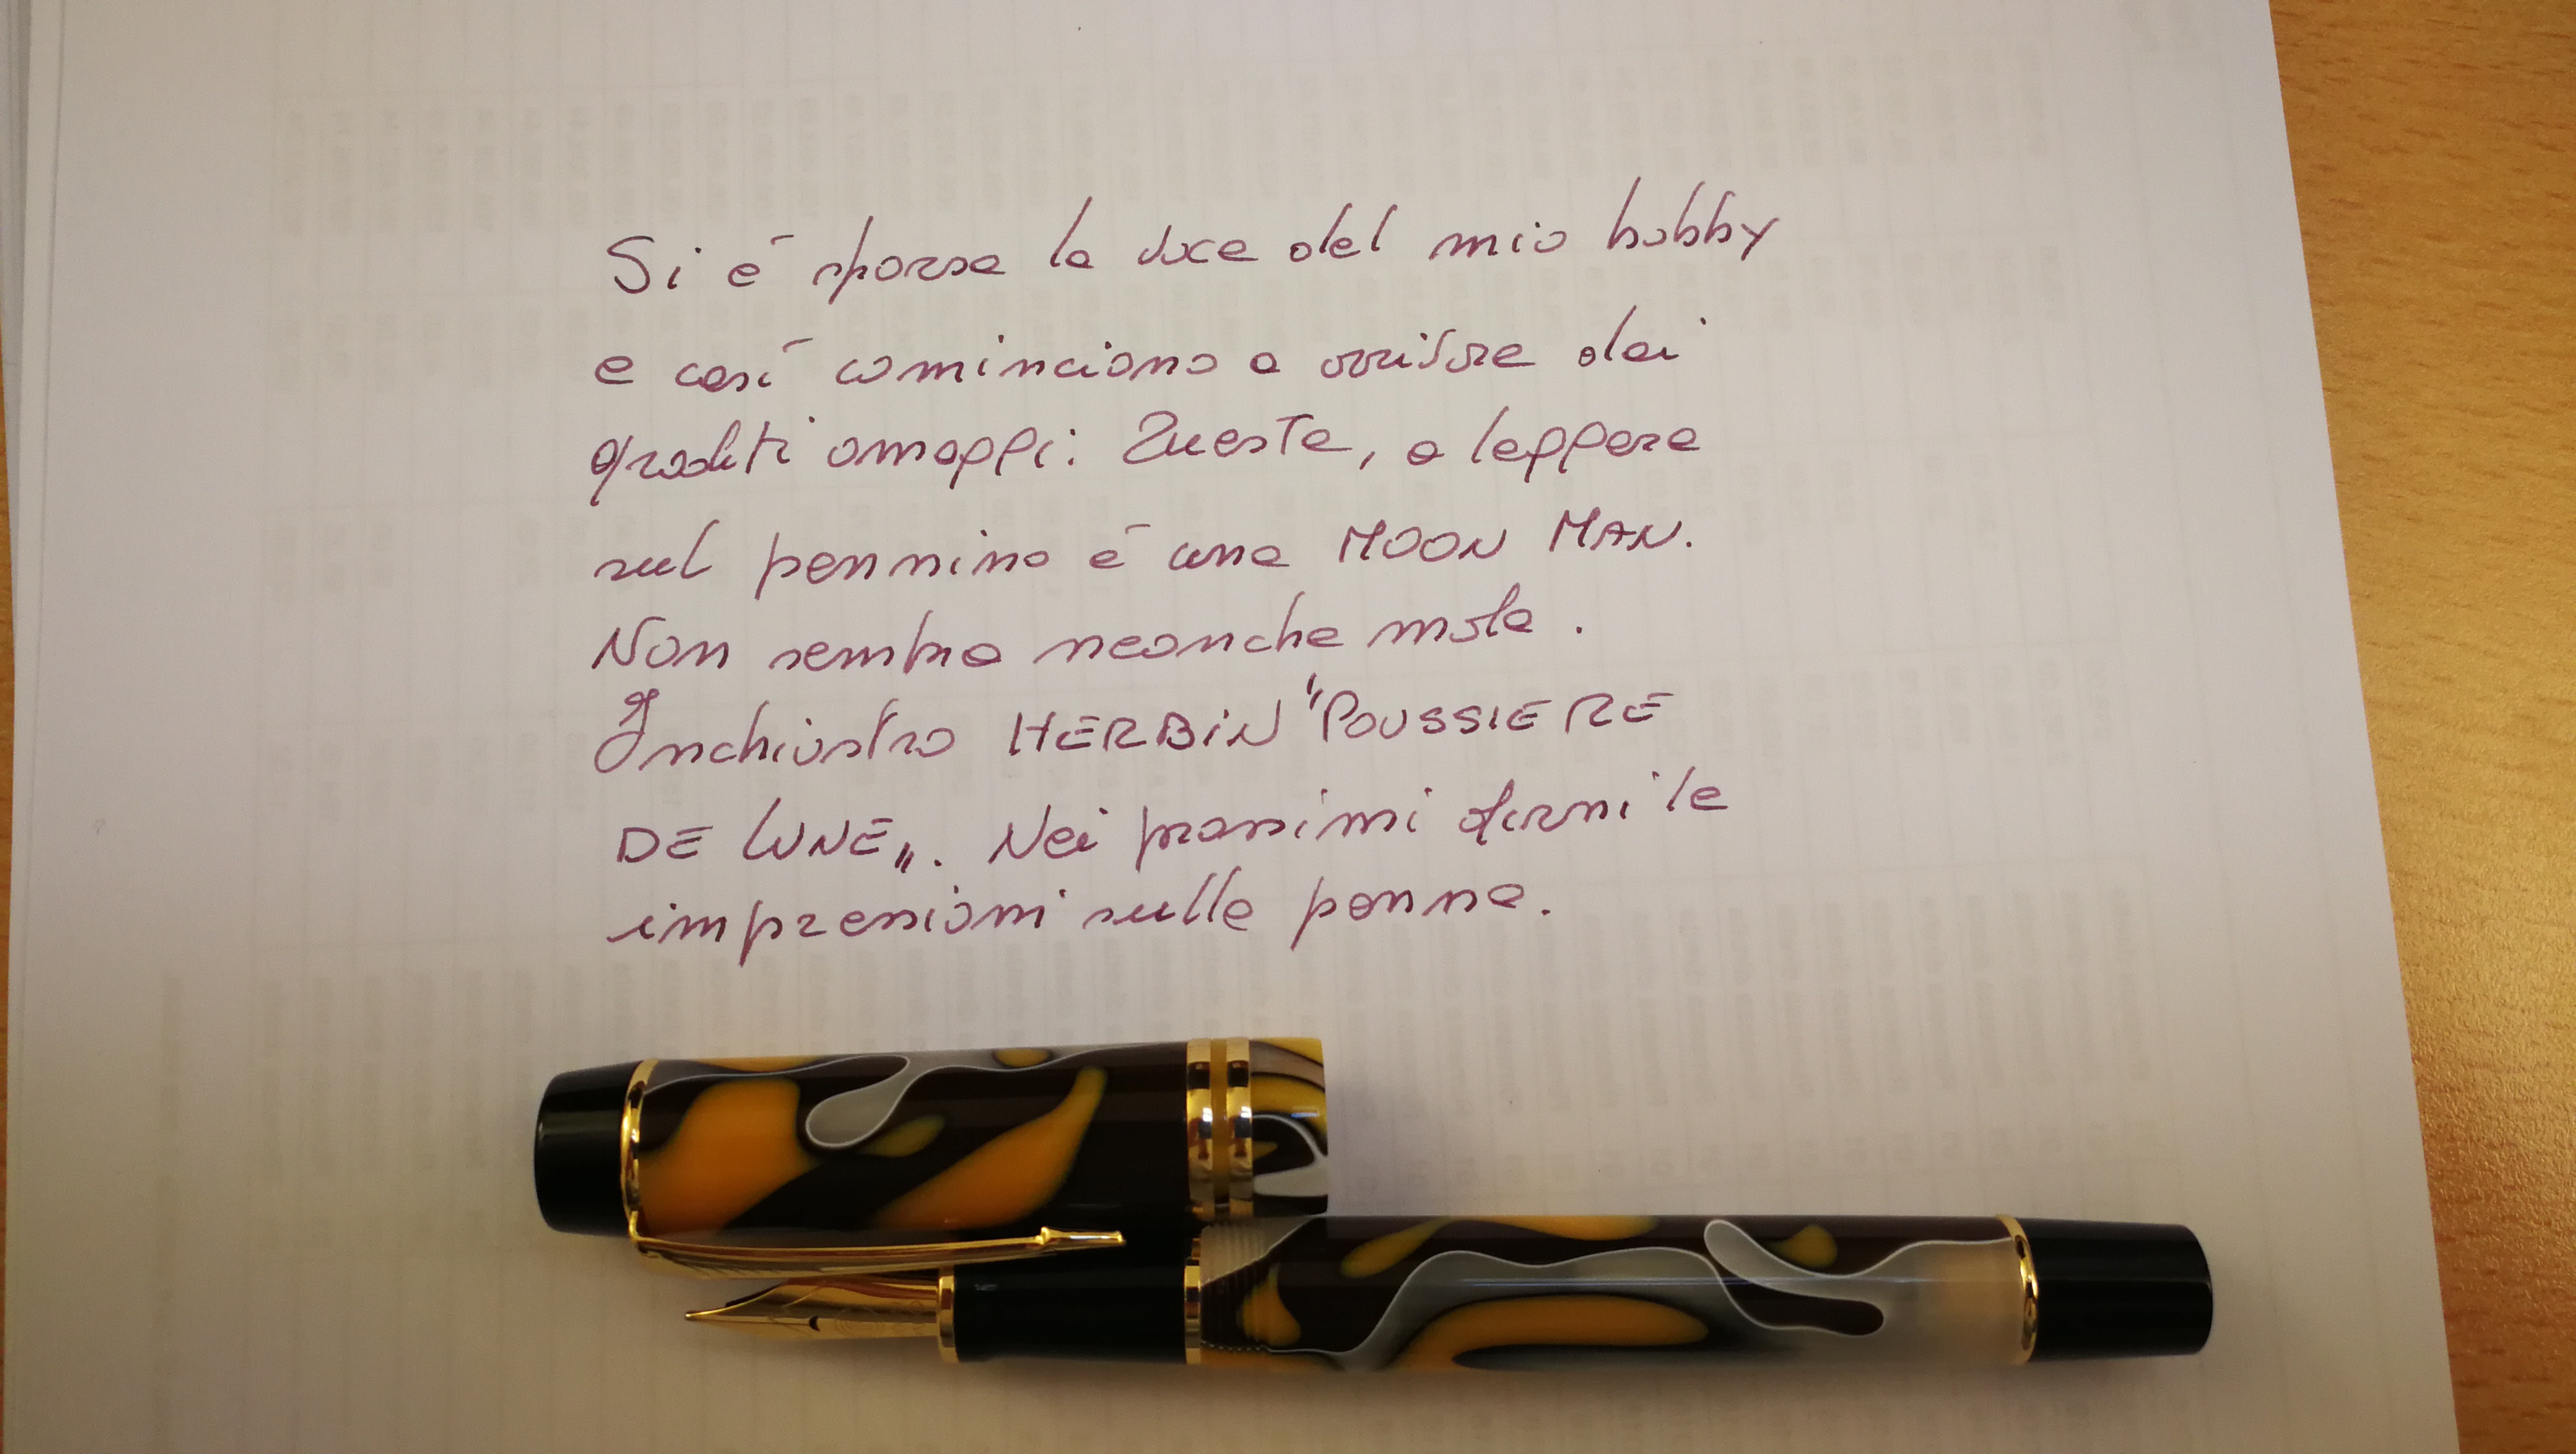 Si é sparsa la voce del mio hobby
e così cominciano a arrivare dei
graditi omaggi: Questa, a leggere
sul pennino é una MOON MAN.
Non sembra neanche male.
Inchiostro HERBIN "POUSSIERE
DE LUNE„. Nei prossimi giorni le
impressioni sulla penna.